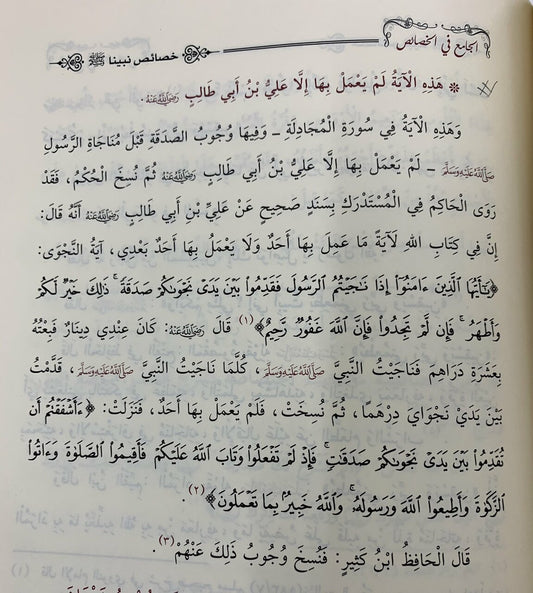 الجامع في الخصائص
خصائص نبينا ﷺ
* هَذِهِ الْآيَةُ لَمْ يَعْمَلْ بِهَا إِلَّا عَلِيُّ بْنُ أَبِي طَالِبٍ رَضِيَ اللَّهُ عَنْهُ.
وَهَذِهِ الْآيَةُ فِي سُورَةِ الْمُجَادِلَةِ ـ وَفِيهَا وُجُوبُ الصَّدَقَةِ قَبْلَ مُنَاجَاةِ الرَّسُولِ
صَلَّى اللَّهُ عَلَيْهِ وَسَلَّمَ ـ لَمْ يَعْمَلْ بِهَا إِلَّا عَلِيُّ بْنُ أَبِي طَالِبٍ رَضِيَ اللَّهُ عَنْهُ ثُمَّ نُسِخَ الْحُكْمُ، فَقَدْ
رَوَى الْحَاكِمُ فِي الْمُسْتَدْرَكِ بِسَنَدٍ صَحِيحٍ عَنْ عَلِيِّ بْنِ أَبِي طَالِبٍ رَضِيَ اللَّهُ عَنْهُ أَنَّهُ قَالَ:
إِنَّ فِي كِتَابِ اللهِ لَآيَةً مَا عَمِلَ بِهَا أَحَدٌ وَلَا يَعْمَلُ بِهَا أَحَدٌ بَعْدِي، آيَةُ النَّجْوَى:
﴿يَٰٓأَيُّهَا ٱلَّذِينَ ءَامَنُوٓا۟ إِذَا نَٰجَيْتُمُ ٱلرَّسُولَ فَقَدِّمُوا۟ بَيْنَ يَدَىْ نَجْوَىٰكُمْ صَدَقَةً ۚ ذَٰلِكَ خَيْرٌ لَّكُمْ
وَأَطْهَرُ ۚ فَإِن لَّمْ تَجِدُوا۟ فَإِنَّ ٱللَّهَ غَفُورٌ رَّحِيمٌ﴾(١) قَالَ رَضِيَ اللَّهُ عَنْهُ: كَانَ عِنْدِي دِينَارٌ فَبِعْتُهُ
بِعَشَرَةِ دَرَاهِمَ فَنَاجَيْتُ النَّبِيَّ صَلَّى اللَّهُ عَلَيْهِ وَسَلَّمَ، كُلَّمَا نَاجَيْتُ النَّبِيَّ صَلَّى اللَّهُ عَلَيْهِ وَسَلَّمَ، قَدَّمْتُ
بَيْنَ يَدَيْ نَجْوَايَ دِرْهَمًا، ثُمَّ نُسِخَتْ، فَلَمْ يَعْمَلْ بِهَا أَحَدٌ، فَنَزَلَتْ: ﴿ءَأَشْفَقْتُمْ أَن
تُقَدِّمُوا۟ بَيْنَ يَدَىْ نَجْوَىٰكُمْ صَدَقَٰتٍ ۚ فَإِذْ لَمْ تَفْعَلُوا۟ وَتَابَ ٱللَّهُ عَلَيْكُمْ فَأَقِيمُوا۟ ٱلصَّلَوٰةَ وَءَاتُوا۟
ٱلزَّكَوٰةَ وَأَطِيعُوا۟ ٱللَّهَ وَرَسُولَهُۥ ۚ وَٱللَّهُ خَبِيرٌۢ بِمَا تَعْمَلُونَ﴾(٢).
قَالَ الْحَافِظُ ابْنُ كَثِيرٍ: فَنُسِخَ وُجُوبُ ذَلِكَ عَنْهُمْ(٣).